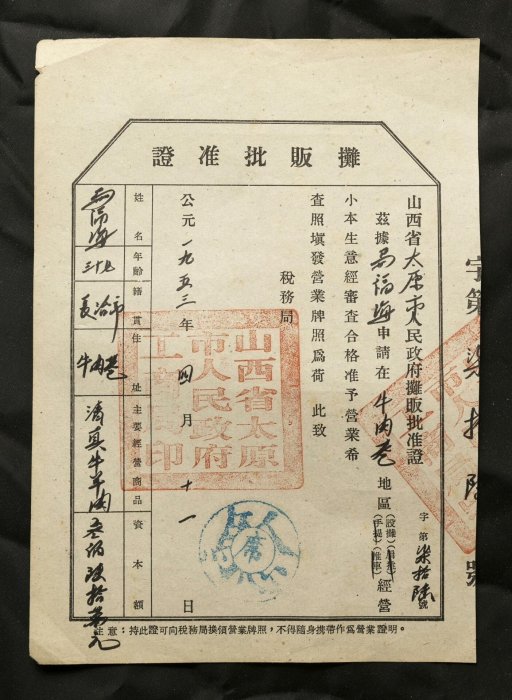 攤販批准證
山西省太原市人民政府攤販批准證
字第柒拾陸號
茲據馬福海申請在牛肉巷地區(設攤)(肩挑)(手提)(推車)經營
小本生意經審查合格准予營業希
查照塡發營業牌照爲荷 此致
稅務局
公元一九五三年四月十一日
姓名 馬福海
年齡 三十七
籍貫 長治市
住址 牛肉巷
主要經營商品 清真牛羊肉
資本額 叁佰陸拾萬元
注意：持此證可向稅務局換領營業牌照，不得隨身携帶作爲營業證明。
山西省太原市人民政府工商局印
字第柒拾陸號